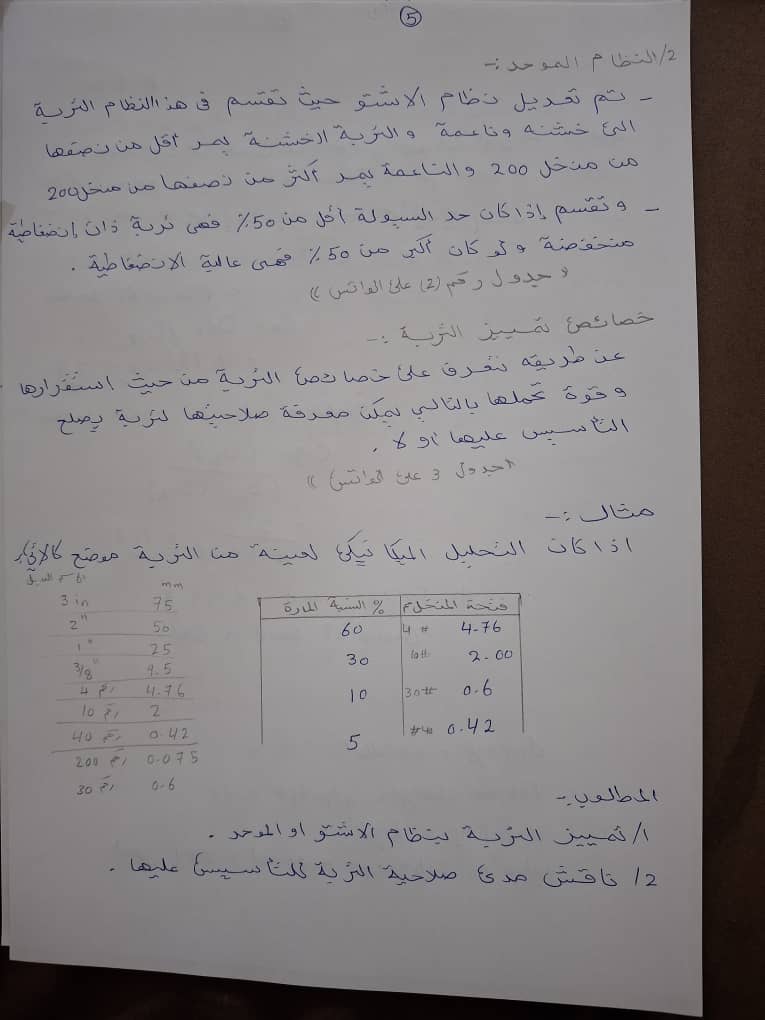 5
2/ النظام الموحد :-
- تم تعديل نظام الاشتو حيث تقسم في هذا النظام التربة
الى خشنه وناعمة والتربة الخشنة يمر أقل من نصفها
من منخل 200 والناعمة يمر أكثر من نصفها من منخل 200
- وتقسم إذا كان حد السيولة أقل من 50% فهي تربة ذات إنضغاطية
منخفضة ولو كان أكبر من 50% فهي عالية الانضغاطية .
« جدول رقم (2) على الواتس »
خصائص تمييز التربة :-
عن طريقه نتعرف على خصائص التربة من حيث استقرارها
وقوة تحملها بالتالي يمكن معرفة صلاحيتها لتربة يصلح
التأسيس عليها او لا .
« جدول 3 على الواتس »
مثال :-
اذا كان التحليل الميكانيكي لعينة من التربة موضح كالاتي:
فتحة المنخل mm % النسبة المارة
4.76 # 4 60
2.00 10# 30
0.6 30# 10
0.42 #40 5
mm
75 3 in
50 2"
25 1"
9.5 3/8"
4.76 رقم 4
2 رقم 10
0.42 رقم 40
0.075 رقم 200
0.6 رقم 30
المطلوب :-
1/ تمييز التربة بنظام الاشتو او الموحد .
2/ ناقش مدى صلاحية التربة للتأسيس عليها .